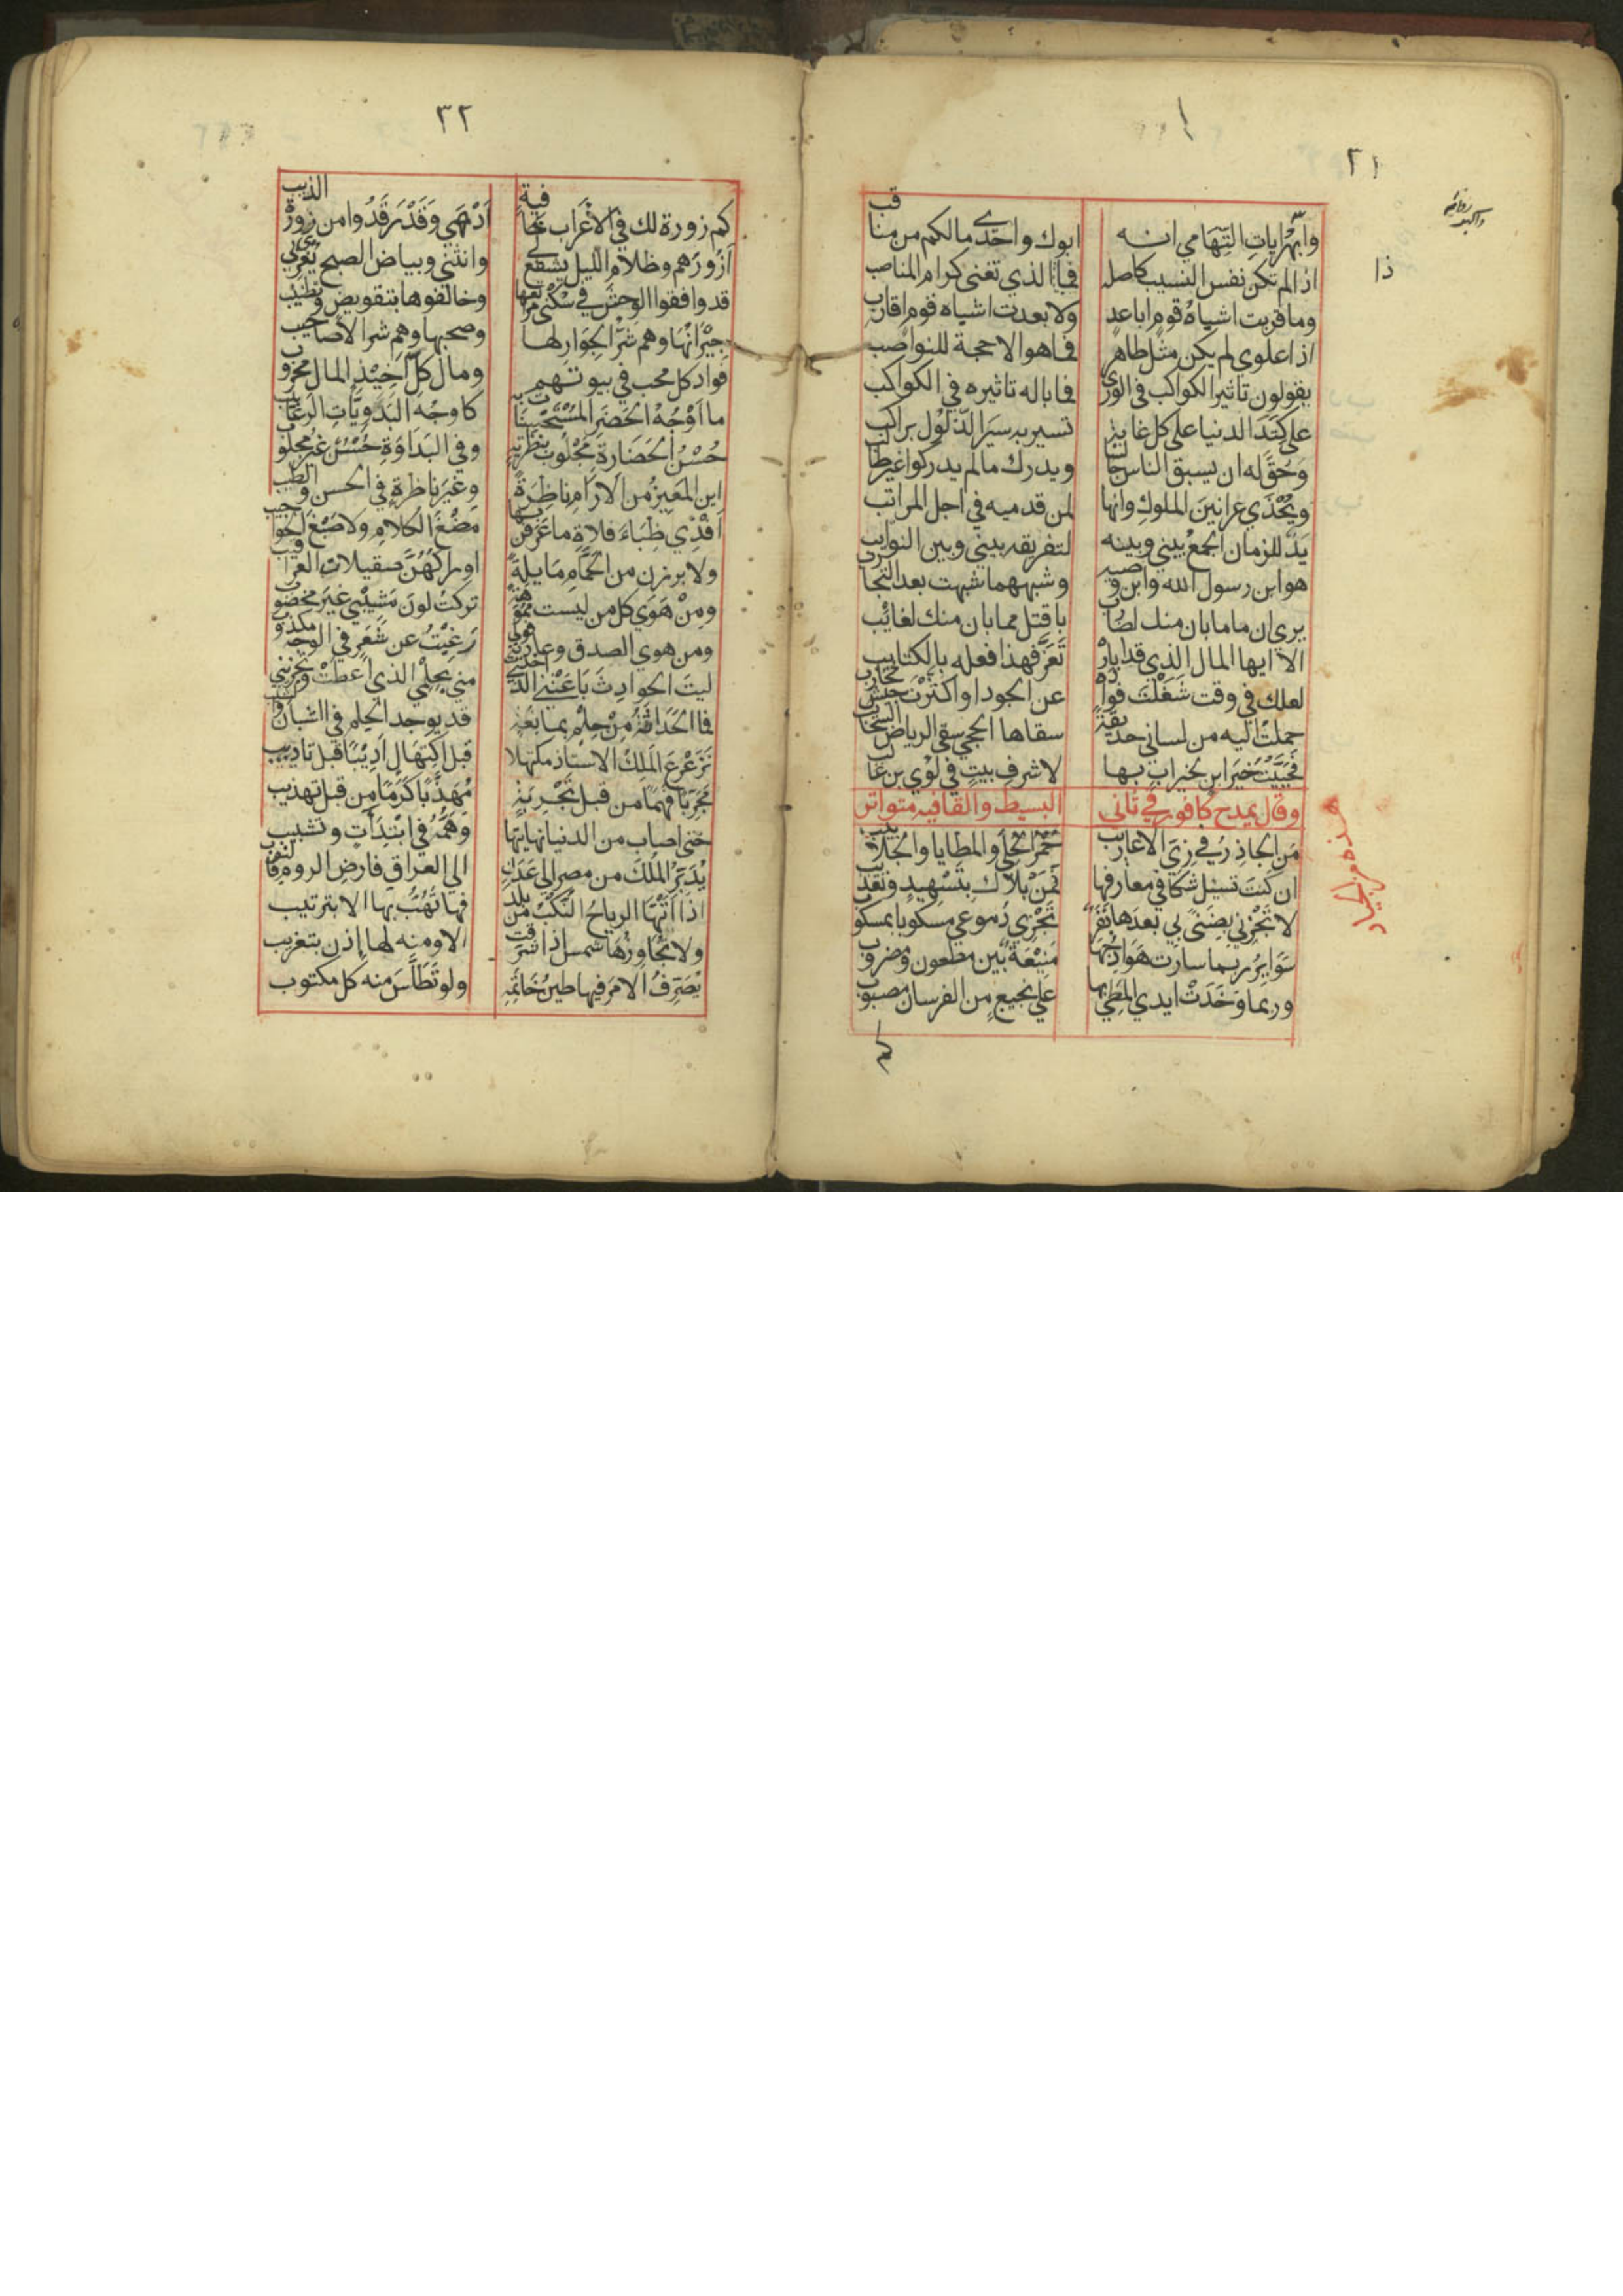 ٣١
وابهر ايات التهامي انه ابوك واحدى مالكم من مناقب
اذا لم تكن نفس النسيب كاصله فماذا الذي تغنى كرام المناصب
وما قربت اشباه قوم اباعد ولا بعدت اشباه قوم اقارب
اذا علوي لم يكن مثل طاهر فما هو الا حجة للنواصب
يقولون تاثير الكواكب في الورى فما باله تاثيره في الكواكب
على كتد الدنيا على كل غاية تسير به سير الذلول براكب
وحق له ان يسبق الناس جالسا ويدرك مالم يدركوا غير طالب
ويحذى عرانين الملوك وانها لمن قدميه في اجل المراتب
يد للزمان الجمع بيني وبينه لتفريقه بيني وبين النوايب
هو ابن رسول الله وابن وصيه وشبههما شبهت بعد التجارب
يرى ان ما مابان منك لضارب باقتل مما بان منك لغائب
الا ايها المال الذي قد اباده تعز فهذا فعله بالكتايب
لعلك في وقت شغلت فواده عن الجود او اكثرت جيش محارب
حملت اليه من لساني حديقة سقاها الحجى سقي الرياض السحايب
فحييت خير ابن لخير اب بها لاشرف بيت في لؤي بن غالب
وقال يمدح كافور في ثاني البسيط والقافيه متواتر
من الجاذر في زي الاعاريب حمر الحلى والمطايا والجلابيب
ان كنت تسئل شكا في معارفها فمن بلاك بتسهيد وتعذيب
لا تجزني بضنى بي بعدها بقر تجزي دموعي مسكوبا بمسكوب
سواير ربما سارت هوادجها منيعة بين مطعون ومضروب
وربما وخدت ايدي المطي بها على نجيع من الفرسان مصبوب
كم
٣٢
كم زورة لك في الاعراب خافية ادهى وقد رقدوا من زورة الذيب
ازورهم وظلام الليل يشفع لي وانثني وبياض الصبح يغري بي
قد وافقوا الوحش في سكنى مراتعها وخالفوها بتقويض وتطنيب
جيرانها وهم شر الجوار لها وصحبها وهم شر الاصاحيب
فواد كل محب في بيوتهم ومال كل اخيذ المال محروب
ما اوجه الحضر المستحسنات به كاوجه البدويات الرعابيب
حسن الحضارة مجلوب بتطرية وفي البداوة حسن غير مجلوب
اين المعيز من الارام ناظرة وغير ناظرة في الحسن والطيب
افدي ظباء فلاة ما عرفن بها مضغ الكلام ولا صبغ الحواجيب
ولا برزن من الحمام مايلة اوراكهن صقيلات العراقيب
ومن هوى كل من ليست مموهة تركت لون مشيبي غير مخضوب
ومن هوى الصدق في قولي وعادته رغبت عن شعر في الوجه مكذوب
ليت الحوادث باعتني الذي اخذت مني بحلمي الذي اعطت وتجريبي
فما الحداثة من حلم بمانعة قد يوجد الحلم في الشبان والشيب
ترعرع الملك الاستاذ مكتهلا قبل اكتهال اديبا قبل تاديب
مجربا فهما من قبل تجربة مهذبا كرما من قبل تهذيب
حتى اصاب من الدنيا نهايتها وهمه في ابتدات وتشبيب
يدبر الملك من مصر الى عدن الى العراق فارض الروم فالنوب
اذا اتتها الرياح النكب من بلد فما تهب بها الا بترتيب
ولا تجاوزها شمس اذا شرقت الا ومنه لها اذن بتغريب
يصرف الامر فيها طين خاتمه ولو تطلس منه كل مكتوب